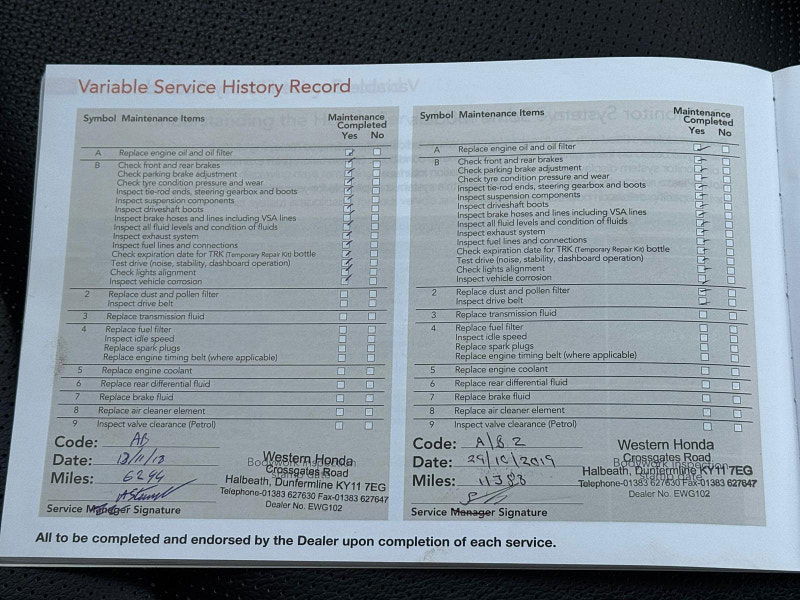 Variable Service History Record
Symbol Maintenance Items Maintenance Completed Yes No
A Replace engine oil and oil filter
B Check front and rear brakes
Check parking brake adjustment
Check tyre condition pressure and wear
Inspect tie-rod ends, steering gearbox and boots
Inspect suspension components
Inspect driveshaft boots
Inspect brake hoses and lines including VSA lines
Inspect all fluid levels and condition of fluids
Inspect exhaust system
Inspect fuel lines and connections
Check expiration date for TRK (Temporary Repair Kit) bottle
Test drive (noise, stability, dashboard operation)
Check lights alignment
Inspect vehicle corrosion
2 Replace dust and pollen filter
Inspect drive belt
3 Replace transmission fluid
4 Replace fuel filter
Inspect idle speed
Replace spark plugs
Replace engine timing belt (where applicable)
5 Replace engine coolant
6 Replace rear differential fluid
7 Replace brake fluid
8 Replace air cleaner element
9 Inspect valve clearance (Petrol)
Code: AB
Date:
Miles: 6294
Service Manager Signature
Bodywork Inspection
Western Honda
Crossgates Road
Halbeath, Dunfermline KY11 7EG
Telephone-01383 627630 Fax-01383 627647
Dealer No. EWG102
Symbol Maintenance Items Maintenance Completed Yes No
A Replace engine oil and oil filter
B Check front and rear brakes
Check parking brake adjustment
Check tyre condition pressure and wear
Inspect tie-rod ends, steering gearbox and boots
Inspect suspension components
Inspect driveshaft boots
Inspect brake hoses and lines including VSA lines
Inspect all fluid levels and condition of fluids
Inspect exhaust system
Inspect fuel lines and connections
Check expiration date for TRK (Temporary Repair Kit) bottle
Test drive (noise, stability, dashboard operation)
Check lights alignment
Inspect vehicle corrosion
2 Replace dust and pollen filter
Inspect drive belt
3 Replace transmission fluid
4 Replace fuel filter
Inspect idle speed
Replace spark plugs
Replace engine timing belt (where applicable)
5 Replace engine coolant
6 Replace rear differential fluid
7 Replace brake fluid
8 Replace air cleaner element
9 Inspect valve clearance (Petrol)
Code: A/B.2
Date: 29/10/2019
Miles:
Service Manager Signature
Bodywork Inspection
Western Honda
Crossgates Road
Halbeath, Dunfermline KY11 7EG
Telephone-01383 627630 Fax-01383 627647
Dealer No. EWG102
All to be completed and endorsed by the Dealer upon completion of each service.